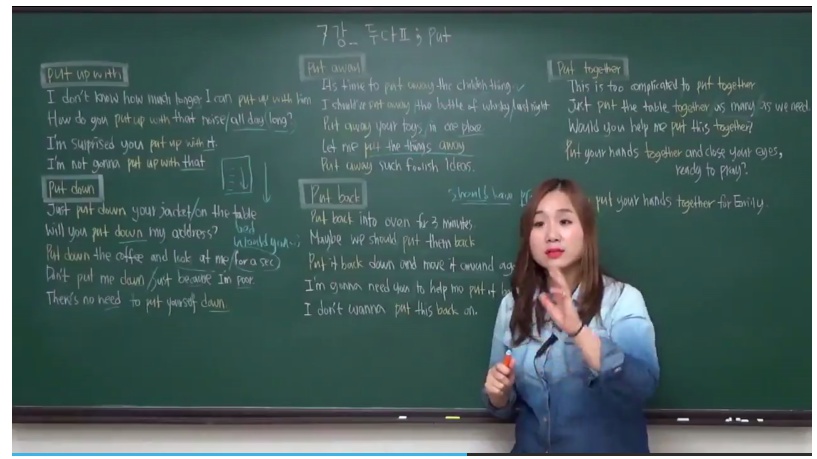 7강_ 두다표; Put
put up with
I don't know how much longer I can put up with him
How do you put up with that noise/all day long?
I'm surprised you put up with it.
I'm not gonna put up with that
Put down
Just put down your jacket/on the table
Will you put down my address?
would you
Put down the coffee and look at me/for a sec
Don't put me down/just because I'm poor.
There's no need to put yourself down.
Put away
It's time to put away the childish thing
I should've put away the bottle of whisky, last night
Put away your toys, in one place
Let me put the things away
Put away such foolish ideas.
Put back
should have
Put back into oven for 3 minutes
Maybe we should put them back
Put it back down and move it around
I'm gonna need you to help me put it
I don't wanna put this back on.
Put together
This is too complicated to put together
Just put the table together as many as we need.
Would you help me put this together?
Put your hands together and close your eyes,
ready to pray?
put your hands together for Emily.